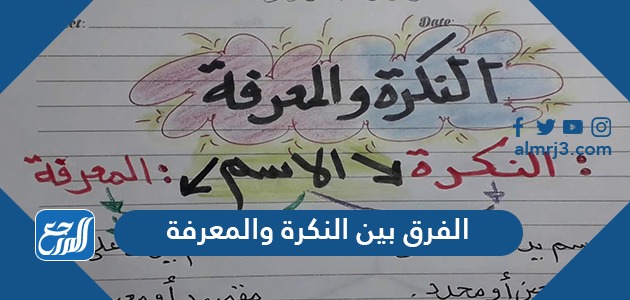 Date:
النكرة والمعرفة
almrj3.com
النكرة : الاسم المعرفة :
الفرق بين النكرة والمعرفة
المرجع
أو محدد .